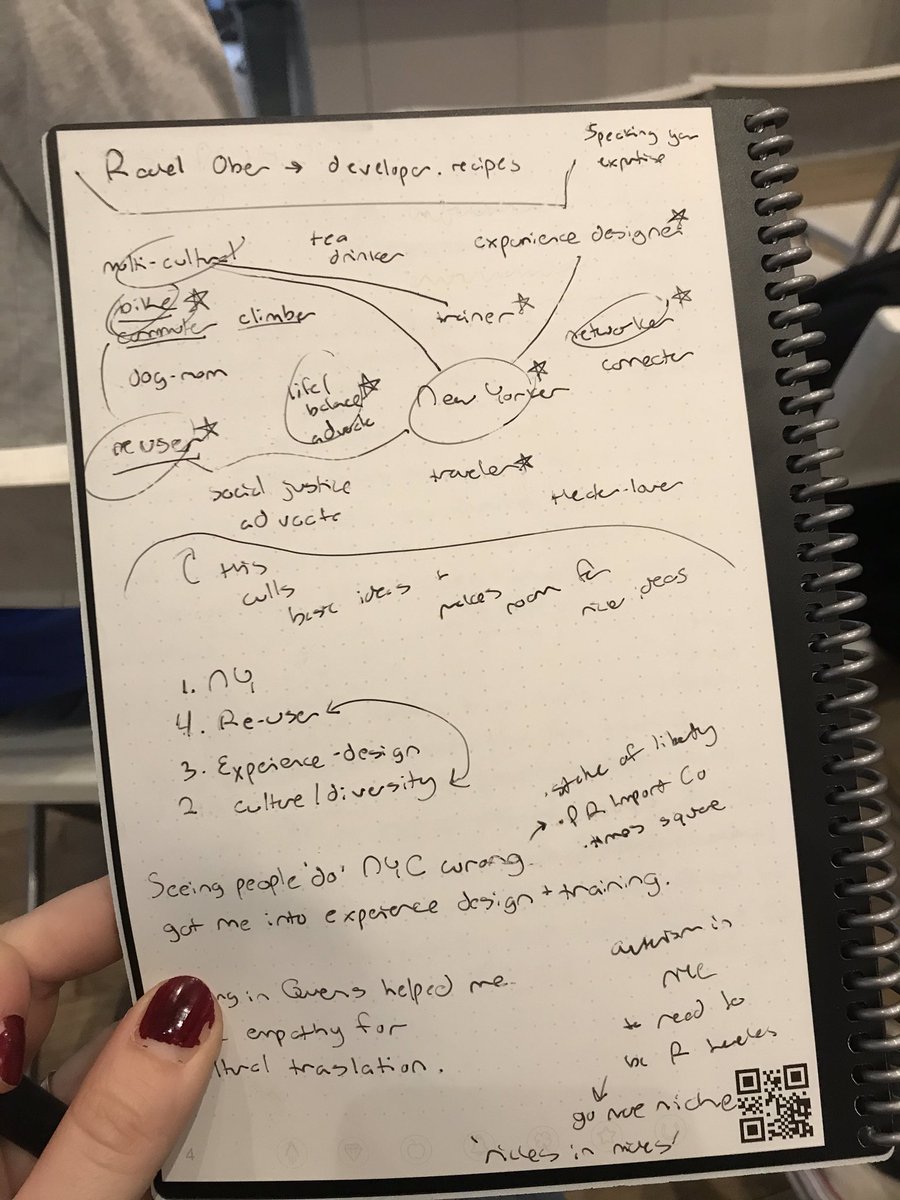 Ober → developer.recipes
Speaking your
expertise
multi-cultural
tea
drinker
experience designer
bike
commuter
climber
trainer
networker
connecter
dog-mom
life/
balance
advocate
New Yorker
re user
social justice
advocate
traveler
this
culls
basic ideas +
makes room for
nice ideas
1. NY
4. Re-user
3. Experience-design
2 culture/diversity
. statue of liberty
. PR Import Co
. times square
Seeing people 'do' NYC wrong
got me into experience design + training.
in Queens helped me
empathy for
.
to need to
be
go more niche
4